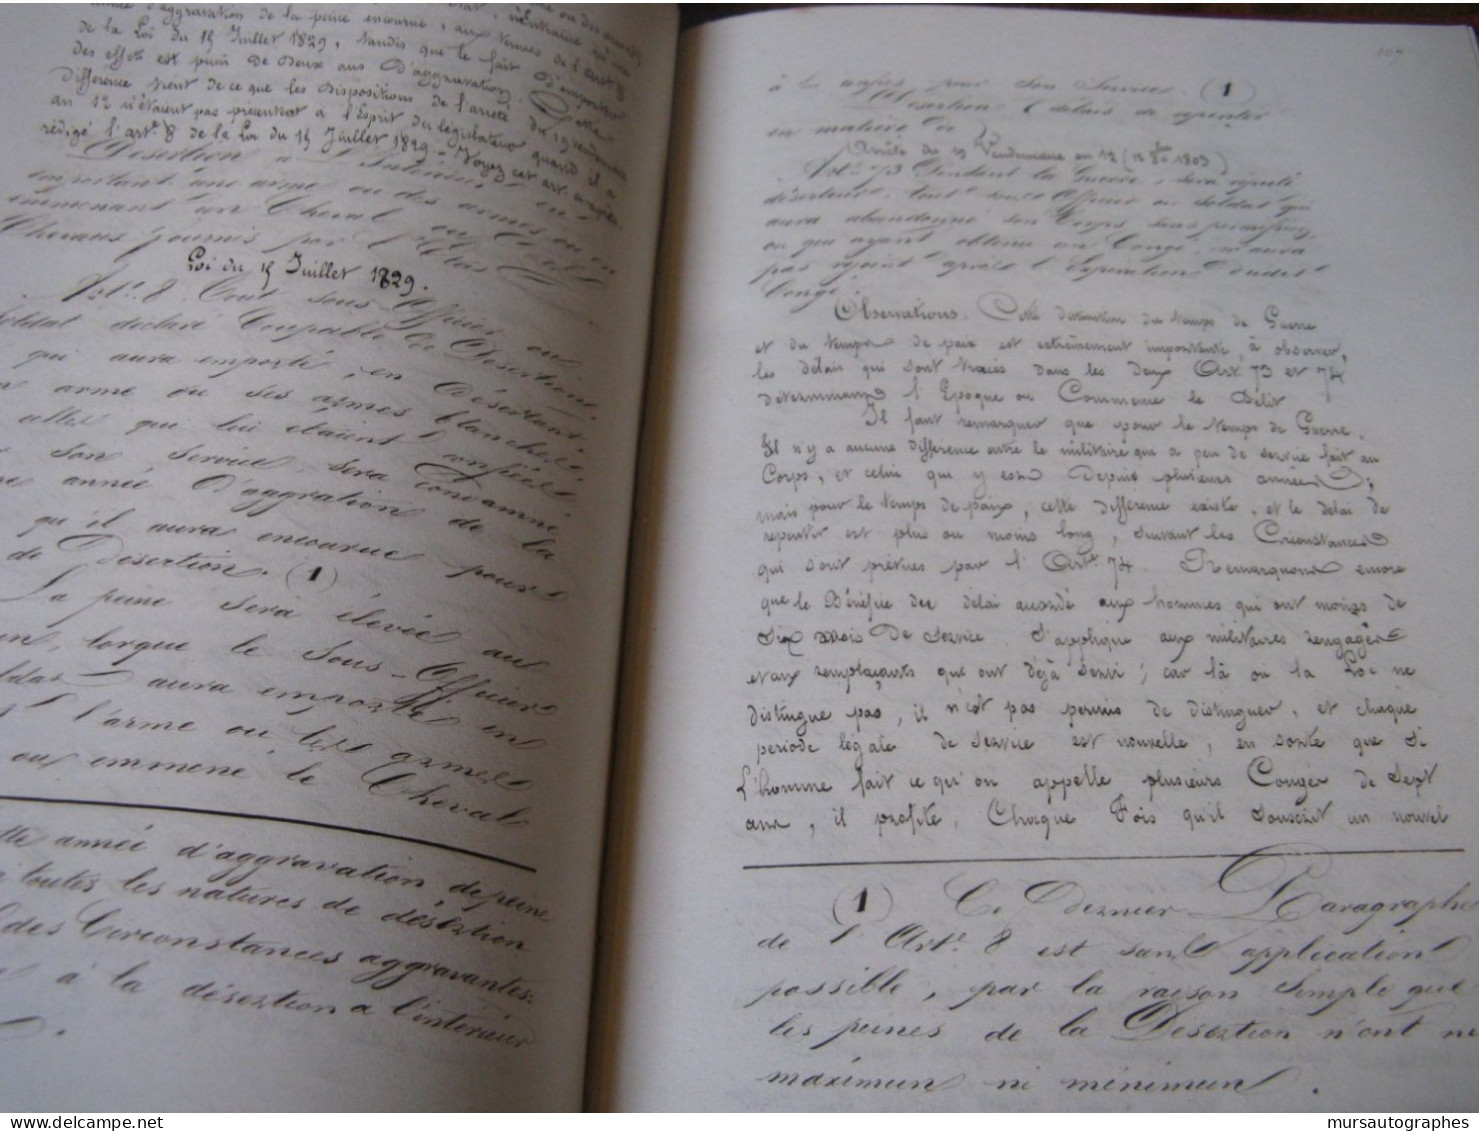 d'aggravation de la peine encourue, aux termes de l'art. 8
de la Loi du 15 Juillet 1829, tandis que le fait d'emporter
des effets est puni de deux ans d'aggravation. Cette
différence vient de ce que les dispositions de l'arrêté du 19 vendémiaire
an 12 n'étaient pas présentes à l'Esprit du législateur quand il a
rédigé l'artᵉ 8 de la Loi du 15 Juillet 1829 - Voyez cet art. ci-après.
Désertion à l'Intérieur en
emportant une arme ou des armes ou en
emmenant un Cheval ou des
Chevaux fournis par l'État
Loi du 15 Juillet 1829.
Artᵉ 8. Tout sous-Officier ou
Soldat déclaré Coupable de Désertion
qui aura emporté, en désertant
arme ou ses armes blanches
qui lui étaient
son service sera condamné
année d'aggration de la
qu'il aura encourue pour
de Désertion. (1)
La peine sera élevée au
lorque le Sous-Officier
aura emporté en
l'arme ou les armes
ou emmené le Cheval
année d'aggravation de peine
à toutes les natures de désertion
des Circonstances aggravantes
à la désertion à l'intérieur
107
à lui confiés pour son Service. (1)
Désertion (délais de repentir
en matière de)
Arrêté du 19 Vendémiaire an 12 (12 8bre 1803)
Artᵉ 73 Pendant la Guerre, sera réputé
déserteur, tout sous-Officier ou soldat qui
aura abandonné son Corps sans permission,
ou qui ayant obtenu un Congé, n'aura
pas rejoint après l'Expiration dudit
Congé.
Observations. Cette distinction du temps de Guerre
et du temps de paix est extrêmement importante, à observer,
les délais qui sont tracés dans les deux Art. 73 et 74
déterminant l'Epoque ou Commence le Délit
Il faut remarquer que pour le temps de Guerre.
Il n'y a aucune différence entre le militaire qui a peu de service fait au
Corps, et celui qui y est depuis plusieurs années;
mais pour le temps de paix, cette différence existe, et le délai de
repentir est plus ou moins long, suivant les Circonstances
qui sont prévues par l'Artᵉ 74. Remarquons encore
que le Bénéfice des délai accordé aux hommes qui ont moins de
Six mois de service. S'applique aux militaires rengagés
et aux remplaçants que ont déjà servi; car là où la Loi ne
distingue pas, il n'est pas permis de distinguer, et chaque
période légale de service est nouvelle, en sorte que si
L'homme fait ce qu'on appelle plusieurs Congés de sept
ans, il profite, Chaque Fois qu'il souscrit un nouvel
(1) Ce Dernier Paragraphe
de l'Artᵉ 8 est sans application
possible, par la raison simple que
les peines de la Désertion n'ont ne
maximum ni minimum.
mursautographes
www.delcampe.net